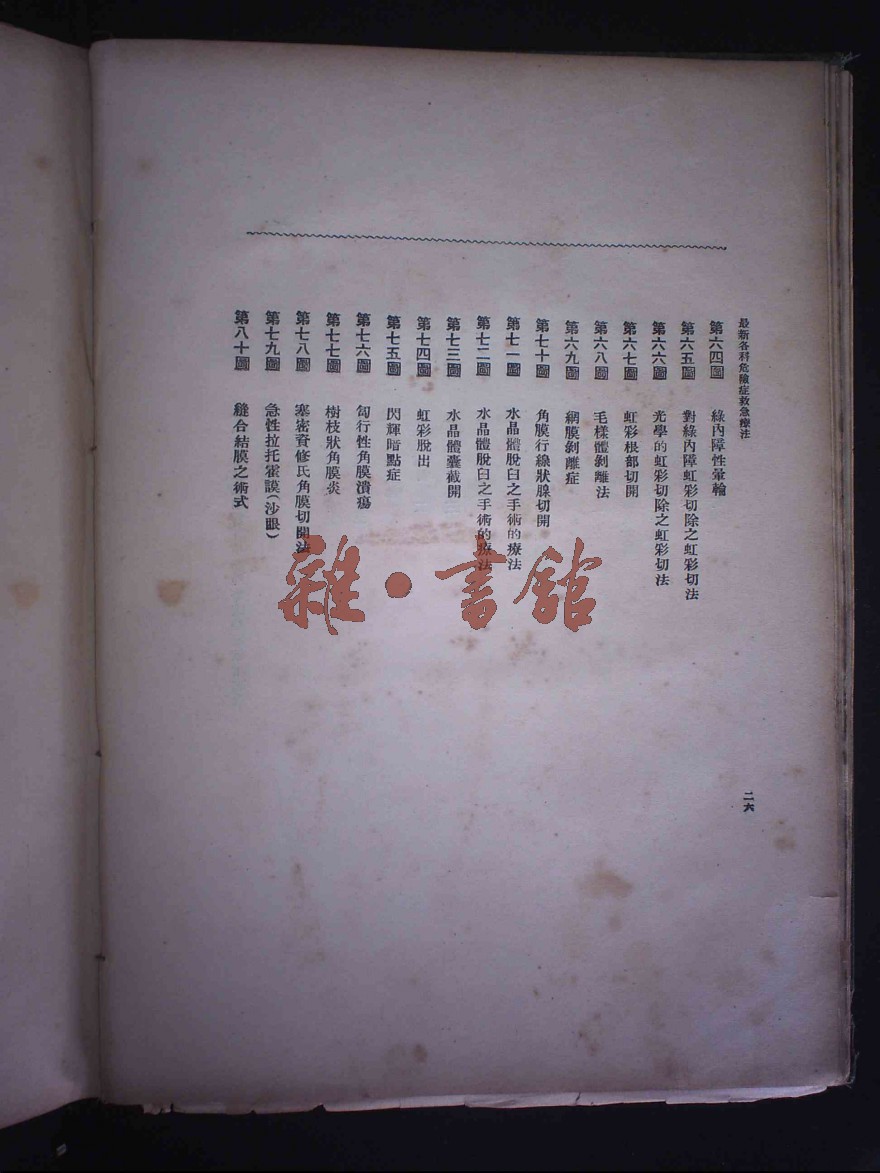 最新各科危險症救急療法
第六四圖 綠內障性暈輪
第六五圖 對綠內障虹彩切除之虹彩切法
第六六圖 光學的虹彩切除之虹彩切法
第六七圖 虹彩根部切開
第六八圖 毛樣體剝離法
第六九圖 網膜剝離症
第七十圖 角膜行線狀腺切開
第七一圖 水晶體脫臼之手術的療法
第七二圖 水晶體脫臼之手術的療法
第七三圖 水晶體囊截開
第七四圖 虹彩脫出
第七五圖 閃輝暗點症
第七六圖 匐行性角膜潰瘍
第七七圖 樹枝狀角膜炎
第七八圖 塞密賚修氏角膜切開法
第七九圖 急性拉托霍謨(沙眼)
第八十圖 縫合結膜之術式
二六
雜·書館